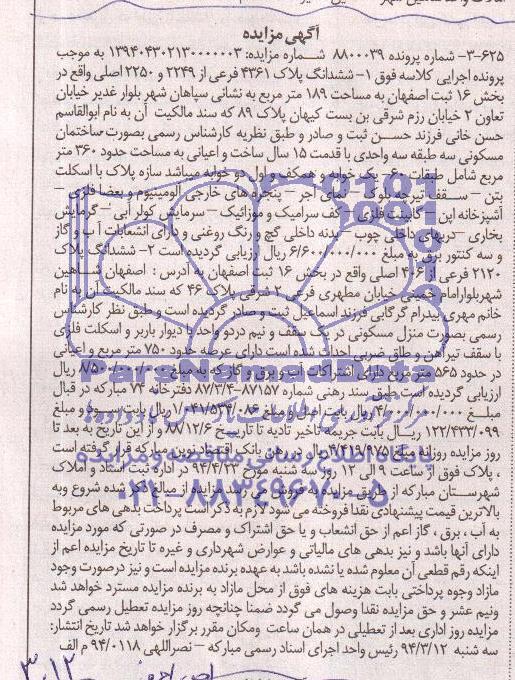 آگهی مزایده
۳-۶۲۵- شماره پرونده ۸۸۰۰۰۳۹ شماره مزایده: ۱۳۹۴۰۴۳۰۲۱۳۰۰۰۰۰۰۳ به موجب
پرونده اجرایی کلاسه فوق ۱- ششدانگ پلاک ۴۳۶۱ فرعی از ۲۲۴۹ و ۲۲۵۰ اصلی واقع در
بخش ۱۶ ثبت اصفهان به مساحت ۱۸۹ متر مربع به نشانی سپاهان شهر بلوار غدیر خیابان
تعاون ۲ خیابان رزم شرقی بن بست کیهان پلاک ۸۹ که سند مالکیت آن به نام ابوالقاسم
حسن خانی فرزند حسـن ثبت و صادر و طبق نظریه کارشناس رسمی بصورت ساختمان
مسکونی سه طبقه سه واحدی با قدمت ۱۵ سال ساخت و اعیانی به مساحت حدود ۳۶۰ متر
مربع شامل طبقات ۶۰- یک خوابه و همکف و اول دو خوابه میباشد سازه پلاک با اسکلت
بتن – سـقف تیرچه بلوک – نمای آجر – پنجره های خارجی آلومینیوم و بعضا فلزی –
آشپزخانه اپن – کابینت فلزی – کف سرامیک و موزائیک – سرمایش کولر آبی – گرمایش
بخاری – دربهای داخلی چوب – بدنه داخلی گچ و رنگ روغنی و دارای انشعابات آب و گاز
و سه کنتور برق به مبلغ ۶/۶۰۰/۰۰۰/۰۰۰ ریال ارزیابی گردیده است ۲- ششدانگ پلاک
۲۱۲۰ فرعی از ۴۰۶ اصلی واقع در بخش ۱۶ ثبت اصفهان به آدرس : اصفهان شـاهین
شهربلوارامام خمینی خیابان مطهری فرعی ۲ شرقی پلاک ۴۶ که سند مالکیت آن به نام
خانم مهری بیدرام گرگابی فرزند اسماعیل ثبت و صادر گردیده است و طبق نظر کارشناس
رسمی بصورت منزل مسکونی در یک سقف و نیم دردو واحد با دیوار باربر و اسکلت فلزی
با سقف تیرآهن و طاق ضربی احداث شده است دارای عرصه حدود ۷۵۰ متر مربع و اعیانی
در حدود ۵۶۵ متر مربع دارای اشتراکات آب و برق و گاز که به مبلغ ۸/۵۰۰/۰۰۰/۰۰۰ ریال
ارزیابی گردیده است طبق سند رهنی شماره ۸۷۱۵۷-۸۷/۳/۴ دفترخانه ۷۴ مبارکه در قبال
مبلـغ ۴/۶۰۰/۰۰۰/۰۰۰ ریال بابت اصل و مبلغ ۱/۰۴۱/۵۳۴/۰۸۶ ریال بابت سود و مبلغ
۱۲۲/۴۳۳/۰۹۹ ریـال بابت جریمه تاخیر تادیه تا تاریـخ ۸۸/۱۲/۶ و از این تاریخ به بعد تا
روز مزایده روزانه مبلغ ۴/۴۱۹/۹۷۵ ریال در رهن بانک اقتصاد نوین مبارکه قرار گرفته است
، پلاک فوق از ساعت ۹ الی ۱۲ روز سه شنبه مورخ ۹۴/۴/۲۳ در اداره ثبت اسناد و املاک
شهرستان مبارکه از طریق مزایده به فروش می رسد مزایده از مبالغ ذکر شده شروع وبه
بالاترین قیمت پیشنهادی نقدا فروخته می شود لازم به ذکر است پرداخت بدهی های مربوط
به آب ، برق ، گاز اعم از حق انشعاب و یا حق اشتراک و مصرف در صورتی که مورد مزایده
دارای آنها باشد و نیز بدهی های مالیاتی و عوارض شهرداری و غیره تا تاریخ مزایده اعم از
اینکه رقم قطعی آن معلوم شده یا نشده باشد به عهده برنده مزایده است و نیز درصورت وجود
مازاد وجوه پرداختی بابت هزینه های فوق از محل مازاد به برنده مزایده مسترد خواهد شد
ونیم عشر و حق مزایده نقدا وصول می گردد ضمنا چنانچه روز مزایده تعطیل رسمی گردد
مزایده روز اداری بعد از تعطیلی در همان ساعت ومکان مقرر برگزار خواهد شد تاریخ انتشار:
سه شنبه ۹۴/۳/۱۲ رئیس واحد اجرای اسناد رسمی مبارکه – نصراللهی ۹۴/۰۱۱۸ م الف
۳،۱۲
۰۲۱-۸۸۳۴۹۶۷۰-۵